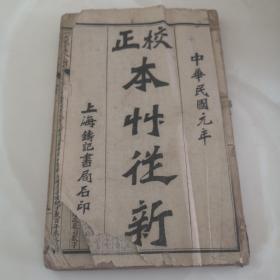 中華民國元年
校正
本艸從新
上海鑄記書局石印